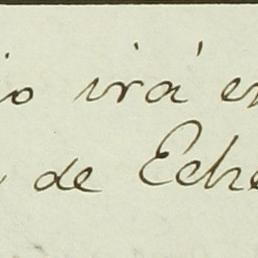 io irá en
de Eche